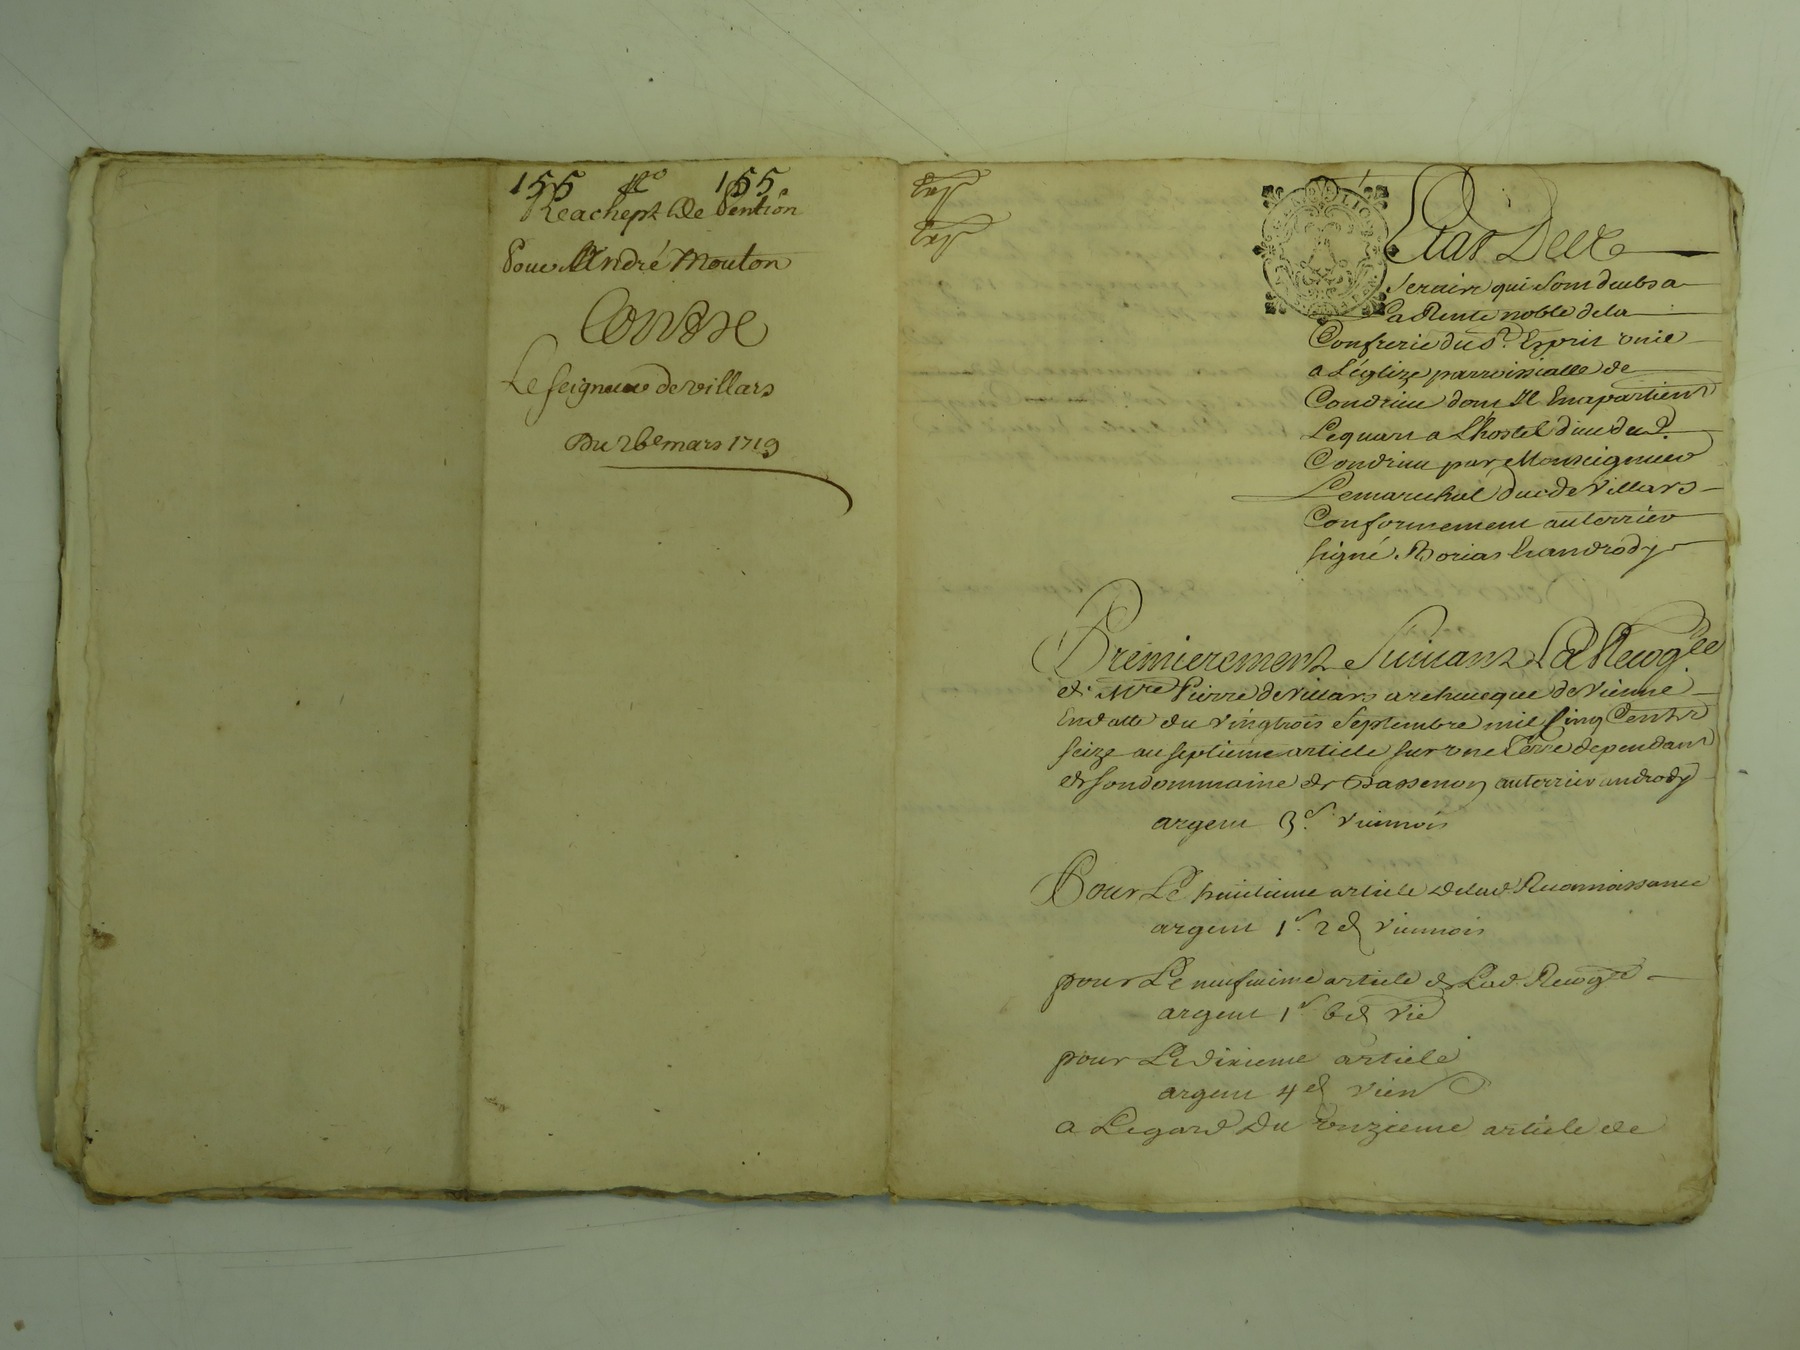 155 No 155
Reachept De Pention
Pour André Mouton
Contre
Le seigneur de villars
Du 26e mars 1719
Estat Des
serain qui sont deubs a
La Rente noble dela
Confrerie du St. Esprit unie
a L'églize parroissialle de
Condrieu dont Il En apartient
Le quart a L'hostel dieu dud.
Condrieu par Monseigneur
Le marechal duc de Villars
Conformement au terrier
signé. Borias Et andrody
Premierement Suivant La Recogce
de Mre Pierre de Villars archeveque de Vienne
En datte du vingtrois Septembre mil sinq Cents
seize au septieme article sur une Terre dependant
de son dommaine de Bassenon au terrier andrody
argent 3s. viennois
Pour Le huitieme article de lad. Reconnoissance
argent 1s. 2d viennois
pour Le neufvieme article de Lad. Recogce
argent 1s 6d vie
pour Le dixieme article
argent 4d vien
a Legard Du onzieme article de